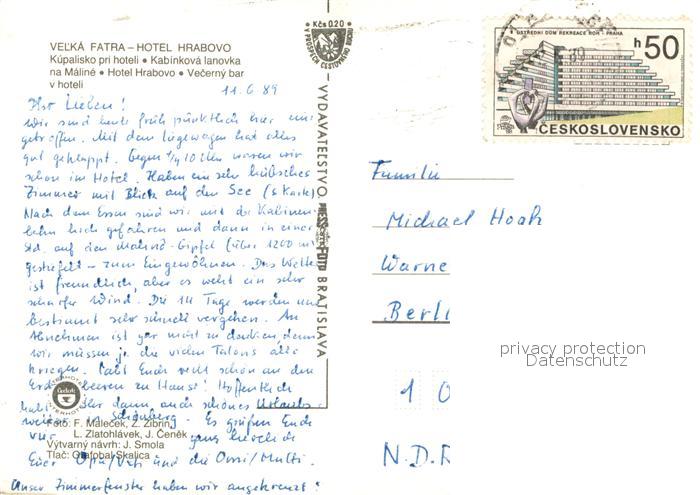 VEĽKÁ FATRA – HOTEL HRABOVO
Kúpalisko pri hoteli • Kabínková lanovka
na Máliné • Hotel Hrabovo • Večerný bar
v hoteli
11.6.89
Ihr Lieben!
Wir sind heute früh pünktlich hier ein-
getroffen. Mit dem Liegewagen hat alles
gut geklappt. Gegen 1/4 10 Uhr waren wir
schon im Hotel. Haben ein sehr hübsches
Zimmer mit Blick auf den See (s Karte)
Nach dem Essen sind wir mit der Kabinen-
bahn hoch gefahren und dann in einer
Std. auf den Gipfel (über 1200 m)
gestiefelt – zum Eingewöhnen. Das Wetter
ist freundlich, aber es weht ein sehr
scharfer Wind. Die 14 Tage werden uns
bestimmt sehr schnell vergehen. An
Abnehmen ist gar nicht zu denken, denn
wir müssen ja die vielen Talons alle
kriegen. Laßt Euch recht schön an den
Erdbeeren zu Hause! Hoffentlich
habt Ihr dann auch schönes Urlaubs-
wetter in Schönberg. Es grüßen Euch
ganz herzlich
Eure Opa/Vati und die Omi/Mutti.
Unser Zimmerfenster haben wir angekreuzt!
INTERHOTEL
Foto: F. Máleček, Z. Zibrin,
L. Zlatohlávek, J. Čeněk
Výtvarný návrh: J. Smola
Tlač: Grafobal Skalica
Kčs 0.20
VYDAVATEĽSTVO PRESSFOTO BRATISLAVA
ÚSTŘEDNÍ DŮM REKREACE ROH - PRAHA
h 50
ČESKOSLOVENSKO
Familie
Michael Hoak
Warne
Berli
1 0
N.D.R
privacy protection
Datenschutz